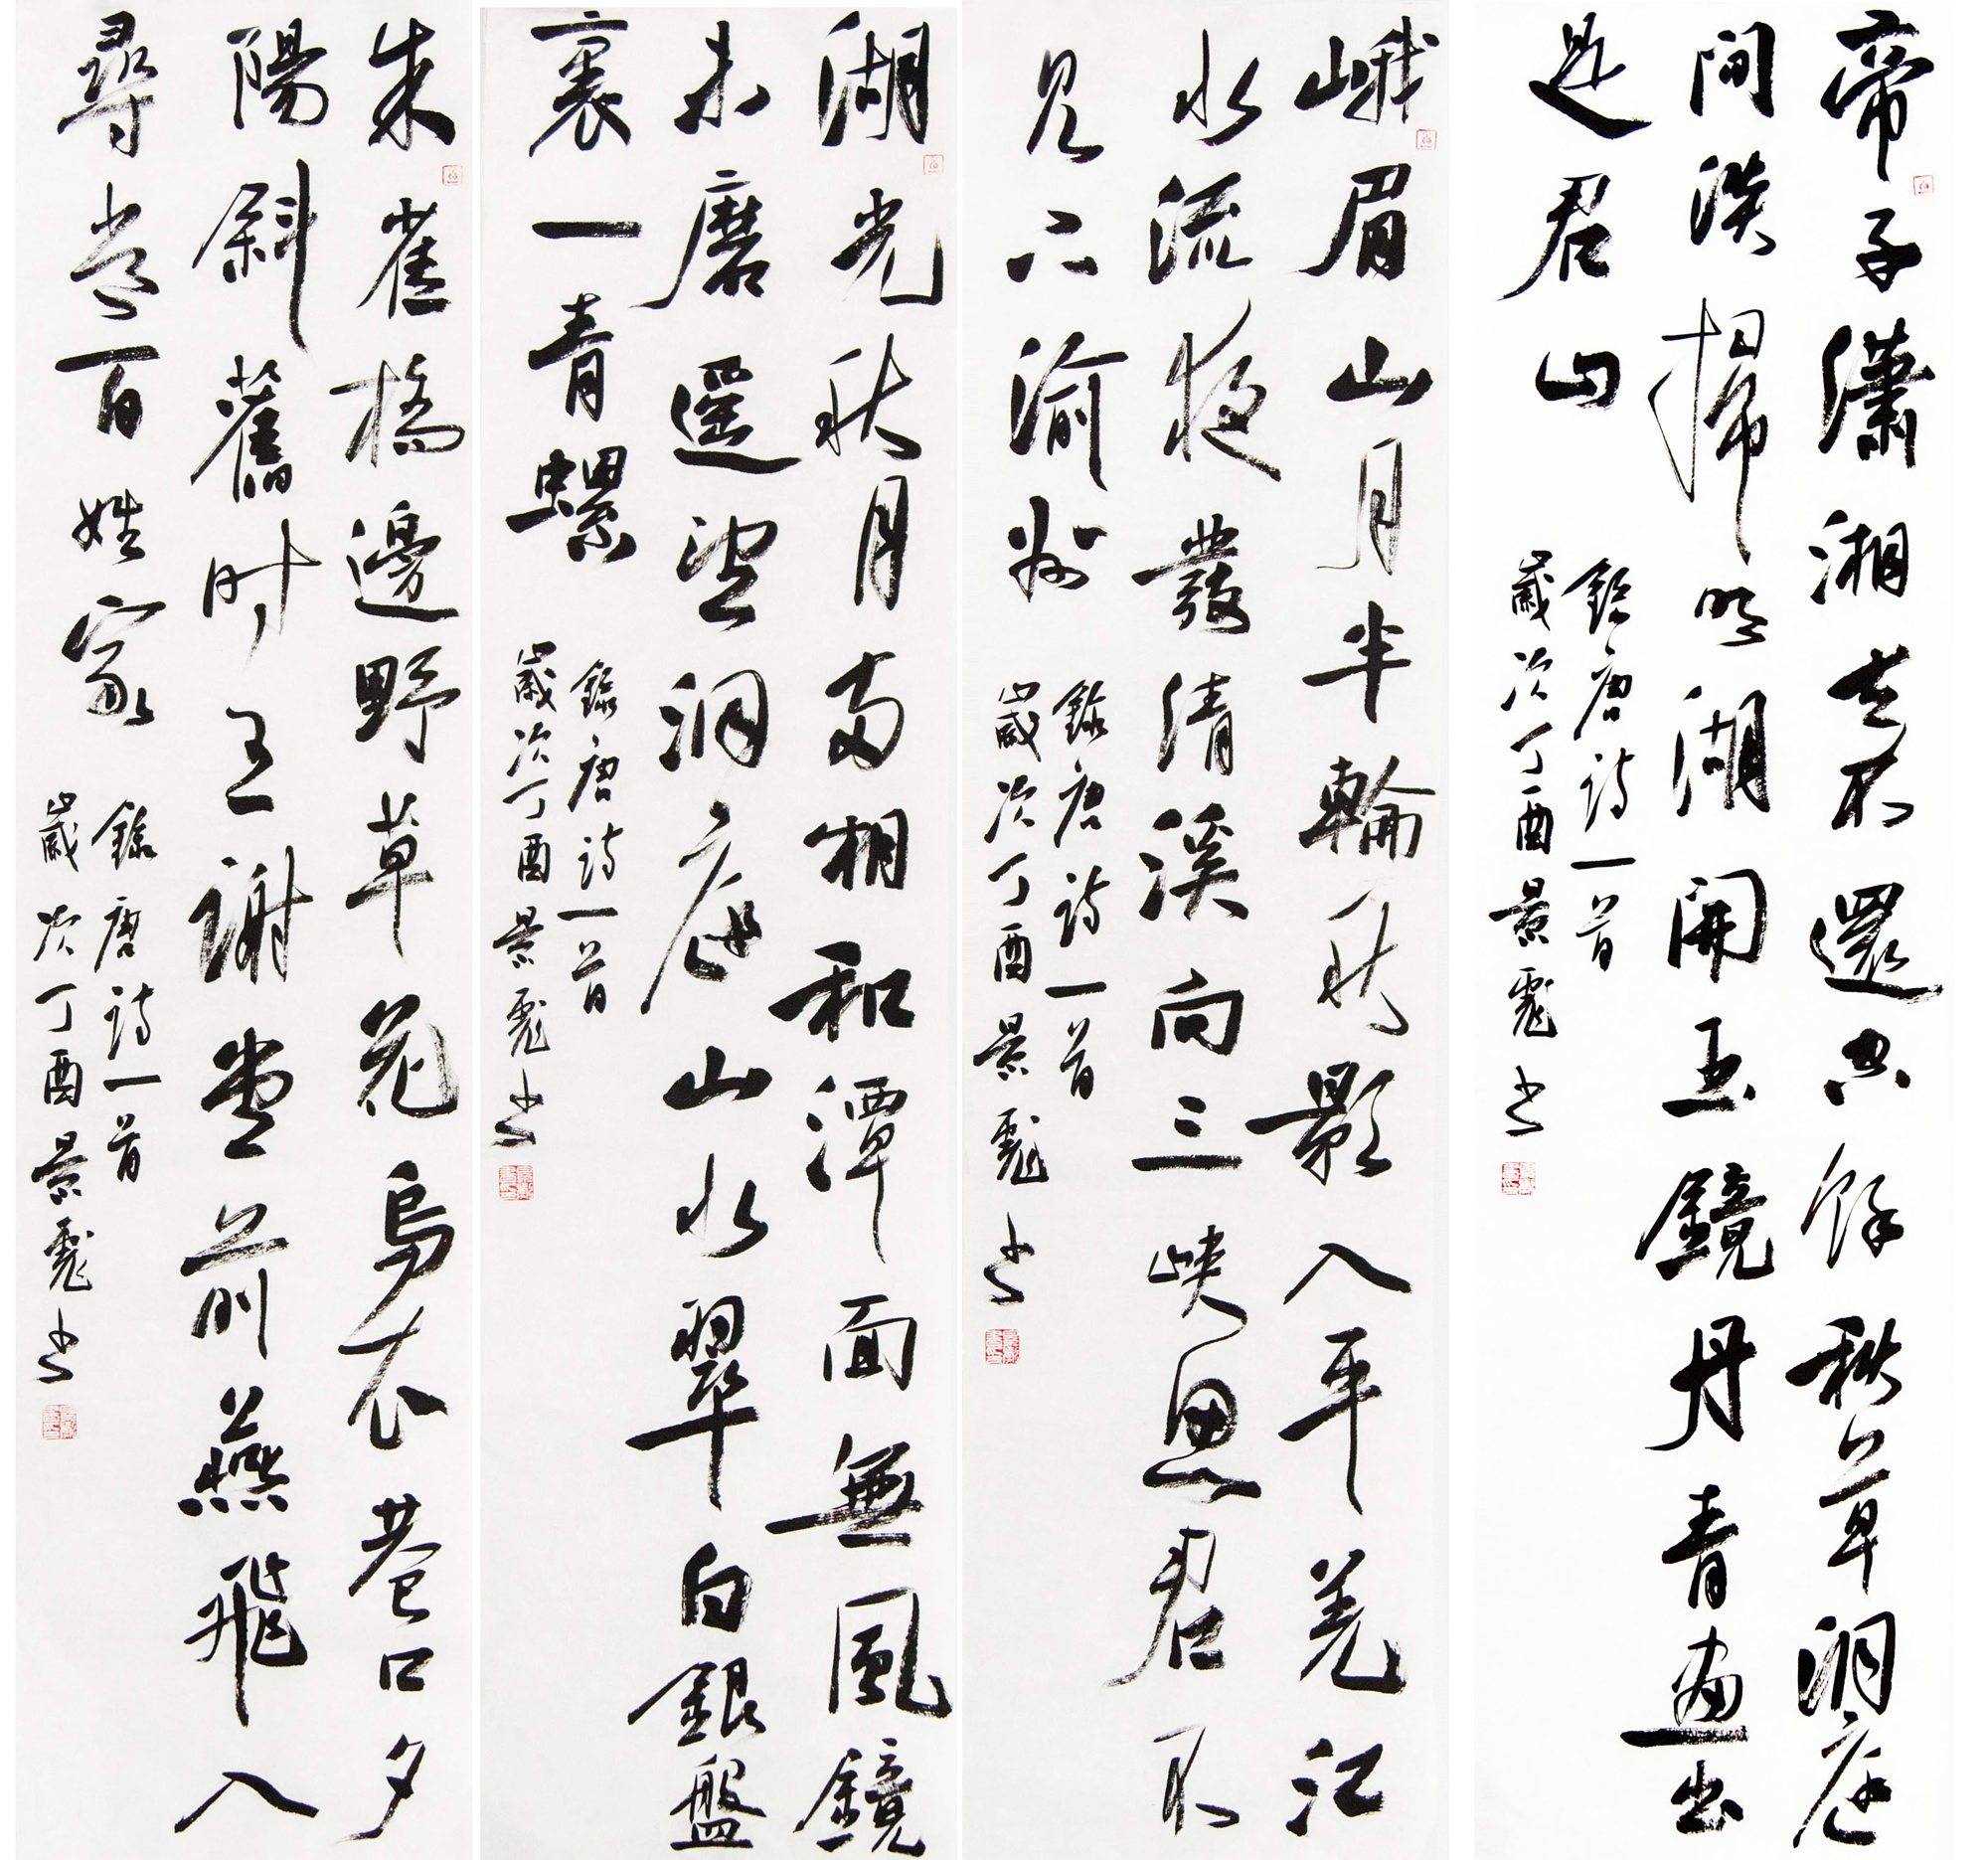 帝子瀟湘去不還空餘秋草洞庭
間淡掃明湖開玉鏡丹青畫出
是君山
錄唐詩一首
歲次丁酉景彪书
峨眉山月半輪秋影入平羌江
水流夜發清溪向三峽思君不
見下渝州
錄唐詩一首
歲次丁酉景彪书
湖光秋月兩相和潭面無風鏡
未磨遙望洞庭山水翠白銀盤
裏一青螺
錄唐詩一首
歲次丁酉景彪书
朱雀橋邊野草花烏衣巷口夕
陽斜舊时王謝堂前燕飛入
尋常百姓家
錄唐詩一首
歲次丁酉景彪书